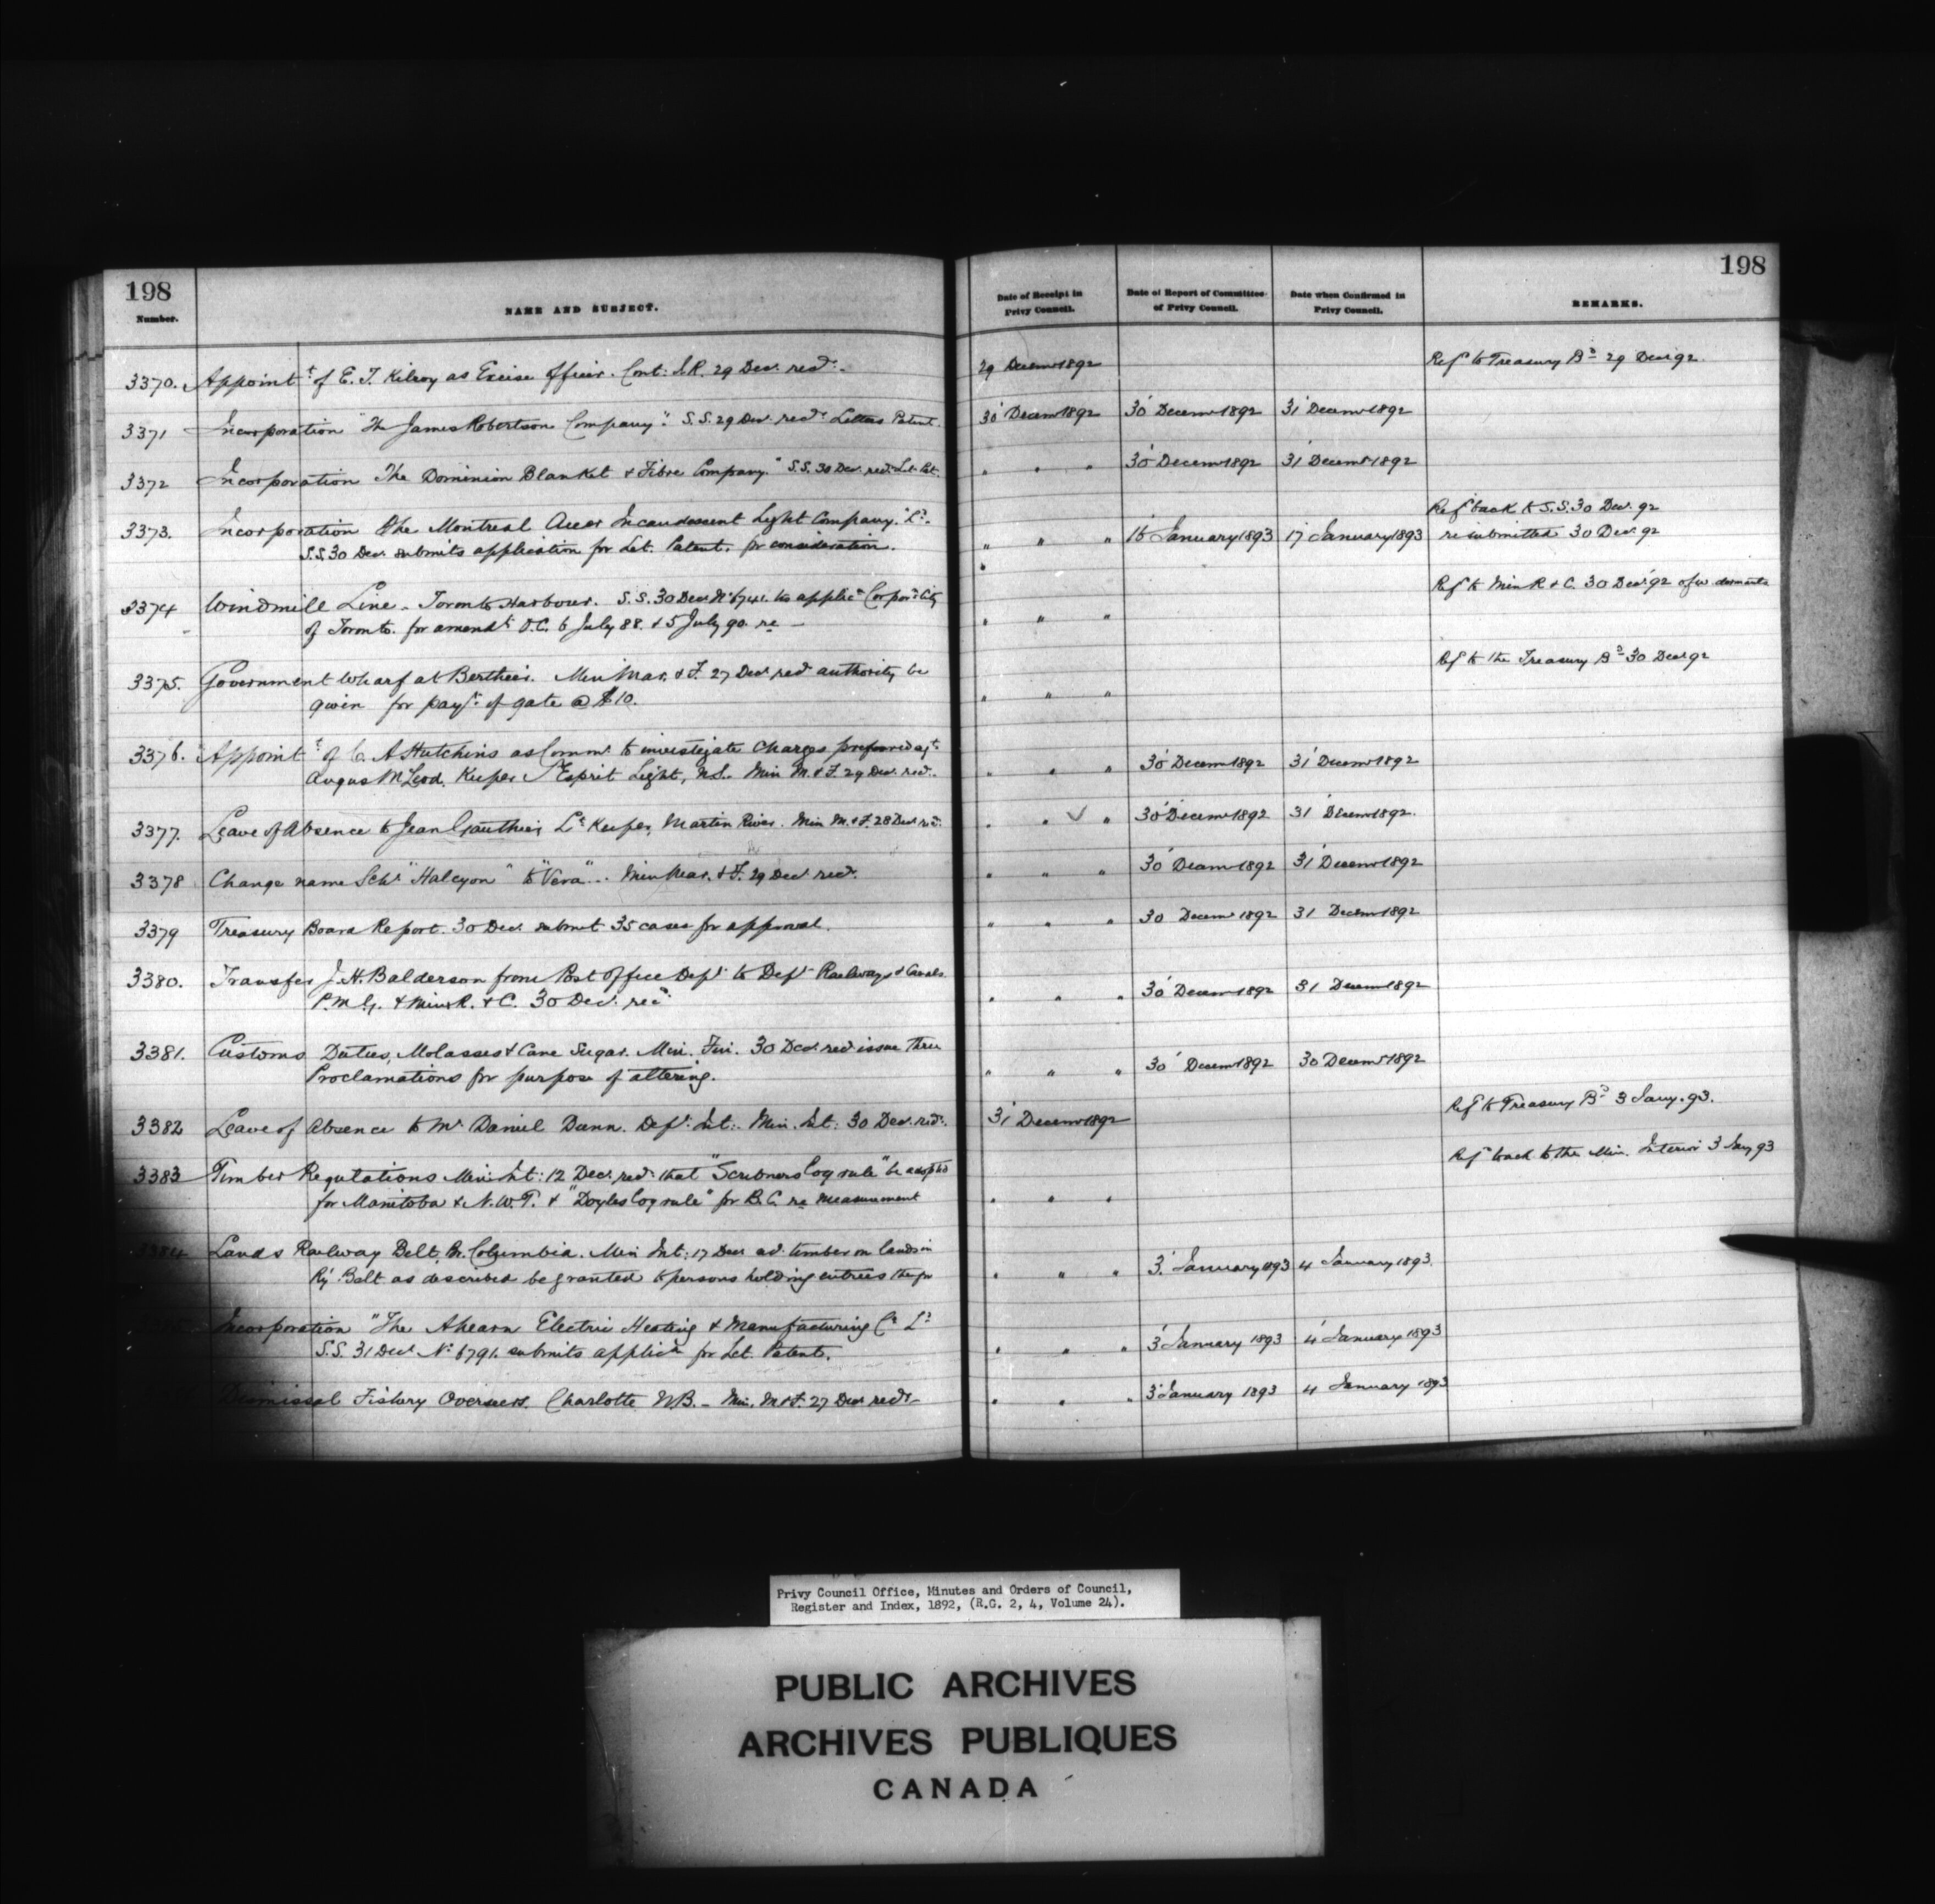 198
Number.
NAME AND SUBJECT.
Date of Receipt in Privy Council.
Date of Report of Committee of Privy Council.
Date when Confirmed in Privy Council.
REMARKS.
198
3370. Appointt of E. T. Kilroy as Excise Officer. Cont: I.R. 29 Decr. recd. 29 Decemr 1892 Ref to Treasury Bd 29 Decr 92.
3371 Incorporation "The James Robertson Company". S.S. 29 Decr recd Letters Patent. 30 Decemr 1892 30 Decemr 1892 31 Decemr 1892
3372 Incorporation The Dominion Blanket & Fibre Company." S.S. 30 Decr recd Let. Pat. " " " 30 Decemr 1892 31 Decemr 1892
3373. Incorporation The Montreal Incandescent Light Company. Ld. Ref back to S.S. 30 Decr. 92
S.S. 30 Decr. submits application for Let. Patent. for consideration. " " " 16 January 1893 17 January 1893 resubmitted 30 Decr 92
3374 Windmill Line - Toronto Harbour. S.S. 30 Decr No 6741. applicn Corporn City Ref to Min R & C. 30 Decr 92
of Toronto. for amendt O.C. 6 July 88. & 5 July 90. re - " " "
3375. Government Wharf at Berthier. Min Mar. & F. 27 Decr recd authority be Ref to the Treasury Bd 30 Decr 92
given for payt of gate @ $10. " " "
3376. Appointt of C. A Hutchins as Commr to investigate Charges preferred agt
Angus McLeod, Keeper St Esprit Light, N.S. Min M. & F. 29 Decr. recd. " " " 30 Decemr 1892 31 Decemr 1892
3377. Leave of Absence to Jean Gauthier, Lt Keeper, Martin River. Min M. & F. 28 Decr recd. " " " 30 Decemr 1892 31 Decemr 1892.
3378 Change name Schr "Halcyon" to "Vera". Min Mar. & F. 29 Decr recd. " " " 30 Decemr 1892 31 Decemr 1892
3379 Treasury Board Report. 30 Decr submit 35 cases for approval. " " " 30 Decemr 1892 31 Decemr 1892
3380. Transfer J. H. Balderson from Post Office Dept to Dept Railways & Canals
P.M.G. & Min R. & C. 30 Decr. recd. " " " 30 Decemr 1892 31 Decemr 1892
3381. Customs Duties, Molasses & Cane Sugar. Min. Fin. 30 Decr recd issue three
Proclamations for purpose of altering. " " " 30 Decemr 1892 30 Decemr 1892
3382 Leave of Absence to Mr Daniel Dunn. Dept. Int: Min. Int: 30 Decr. recd. 31 Decemr 1892 Ref to Treasury Bd 3 Jany. 93.
3383 Timber Regulations Min Int: 12 Decr. recd that "Scribners log rule" be adopted Ref back to the Min. Interior 3 Jany 93
for Manitoba & N.W.T. & "Doyles log rule" for B.C. re measurement " " "
3384 Lands Railway Belt, Br. Columbia. Min Int: 17 Decr timber on lands in
Ry Belt as described be granted to persons holding entries " " " 3 January 1893 4 January 1893.
Incorporation "The Ahearn Electric Heating & Manufacturing Co Ld
S.S. 31 Decr No 6791. submits applicn for Let. Patent. " " " 3 January 1893 4 January 1893
Dismissal Fishery Overseers. Charlotte N.B. - Min. M & F. 27 Decr recd - " " " 3 January 1893 4 January 1893
Privy Council Office, Minutes and Orders of Council,
Register and Index, 1892, (R.G. 2, 4, Volume 24).
PUBLIC ARCHIVES
ARCHIVES PUBLIQUES
CANADA